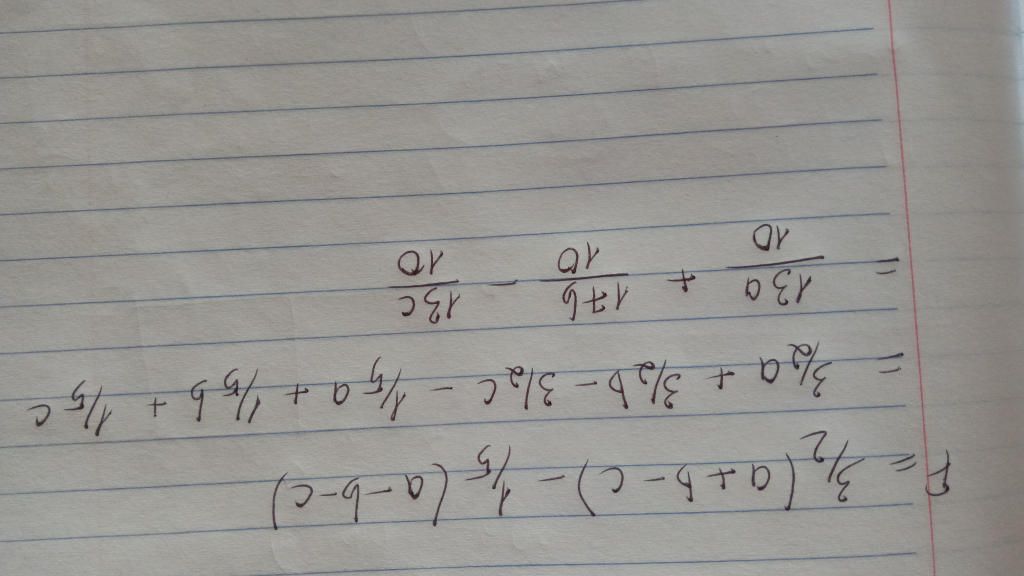 P = 3/2 (a + b - c) - 1/5 (a - b - c)
= 3/2 a + 3/2 b - 3/2 c - 1/5 a + 1/5 b + 1/5 c
= 13a/10 + 17b/10 - 13c/10